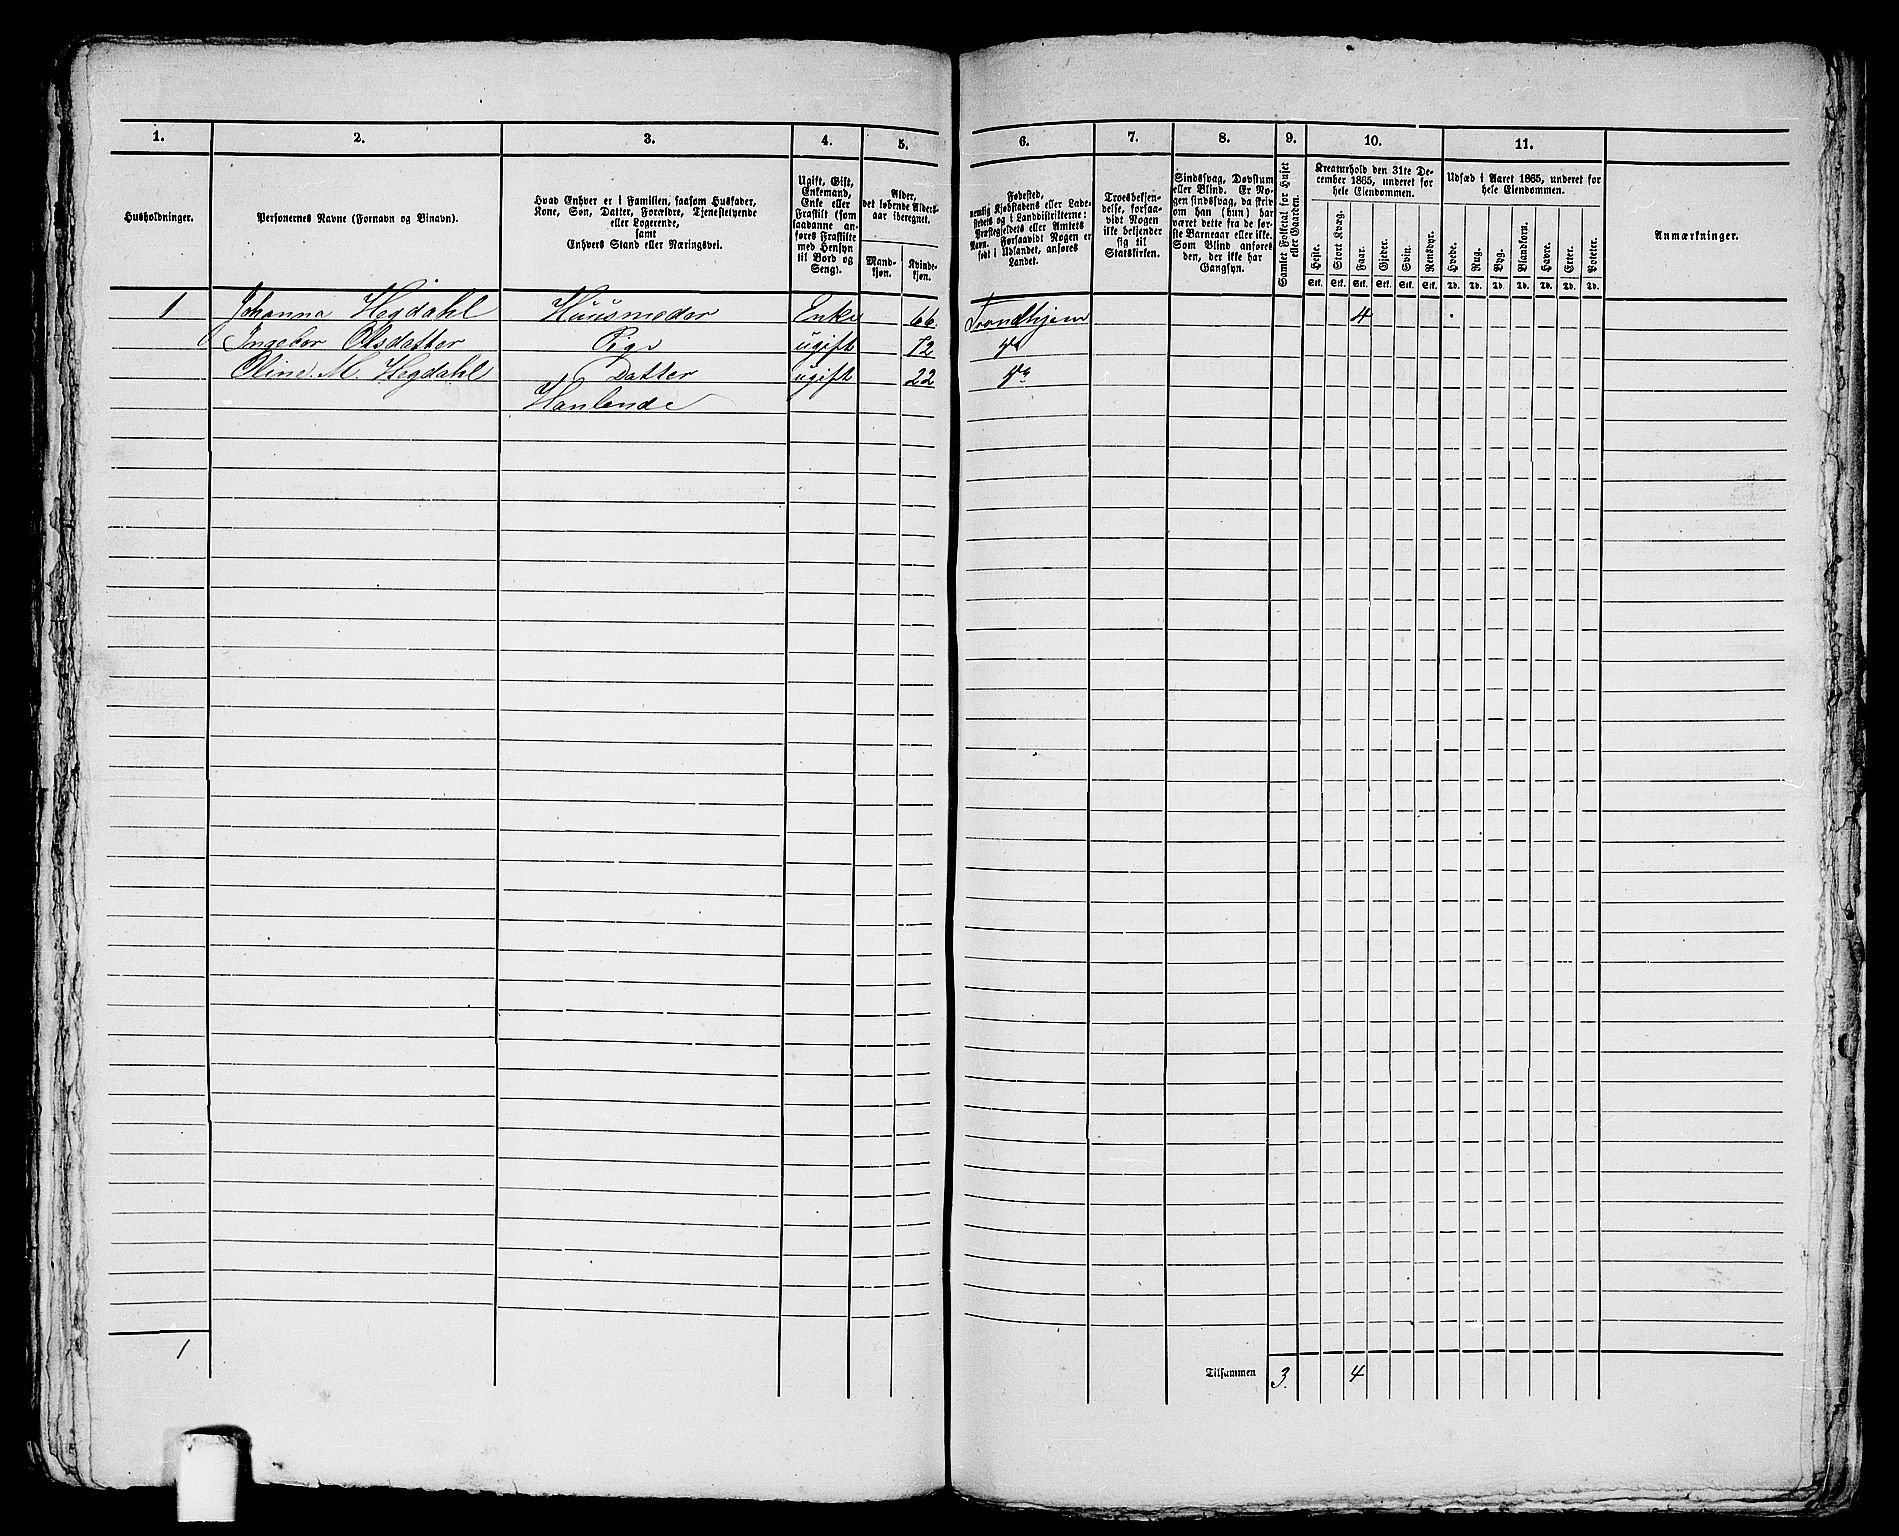 1. 2. 3. 4. 5. 6. 7. 8. 9. 10. 11.
Husholdninger.
Personernes Navne (Fornavn og Binavn).
Hvad Enhver er i Familien, saasom Husfader,
Kone, Søn, Datter, Forældre, Tjenestetyende
eller Logerende,
samt
Enhvers Stand eller Næringsvei.
Ugift, Gift,
Enkemand,
Enke eller
Fraskilt (som
saadanne an-
føres Fraskilte
med Hensyn
til Bord og
Seng).
Alder,
det løbende Alders-
aar iberegnet.
Mand-
kjøn.
Kvinde-
kjøn.
Fødested,
nemlig Kjøbstadens eller Lade-
stedets og i Landdistrikterne:
Præstegjeldets eller Amtets
Navn. Forsaavidt Nogen er
født i Udlandet, anføres
Landet.
Troesbekjen-
delse, forsaa-
vidt Nogen
ikke bekjender
sig til
Statskirken.
Sindssvag, Døvstum
eller Blind. Er No-
gen sindssvag, da skriv
om han (hun) har
været dette fra de før-
ste Barneaar eller ikke.
Som Blind anføres
den, der ikke har
Gangsyn.
Samlet Folketal for Huset
eller Gaarden.
Kreaturhold den 31te De-
cember 1865, underet for
hele Eiendommen.
Heste. Stort Kvæg. Faar. Gjeder. Svin. Rensdyr.
Stk. Stk. Stk. Stk. Stk. Stk.
Udsæd i Aaret 1865, underet for
hele Eiendommen.
Hvede. Rug. Byg. Blandkorn. Havre. Erter. Poteter.
Td. Td. Td. Td. Td. Td. Td.
Anmærkninger.
1 Johanna Hegdahl Huusmoder Enke 66. Trondhjem 4
Ingebor Olsdatter Pige ugift 72 do
Oline. M. Hegdahl Datter ugift 22 do
Hanlende
1 Tilsammen 3. 4